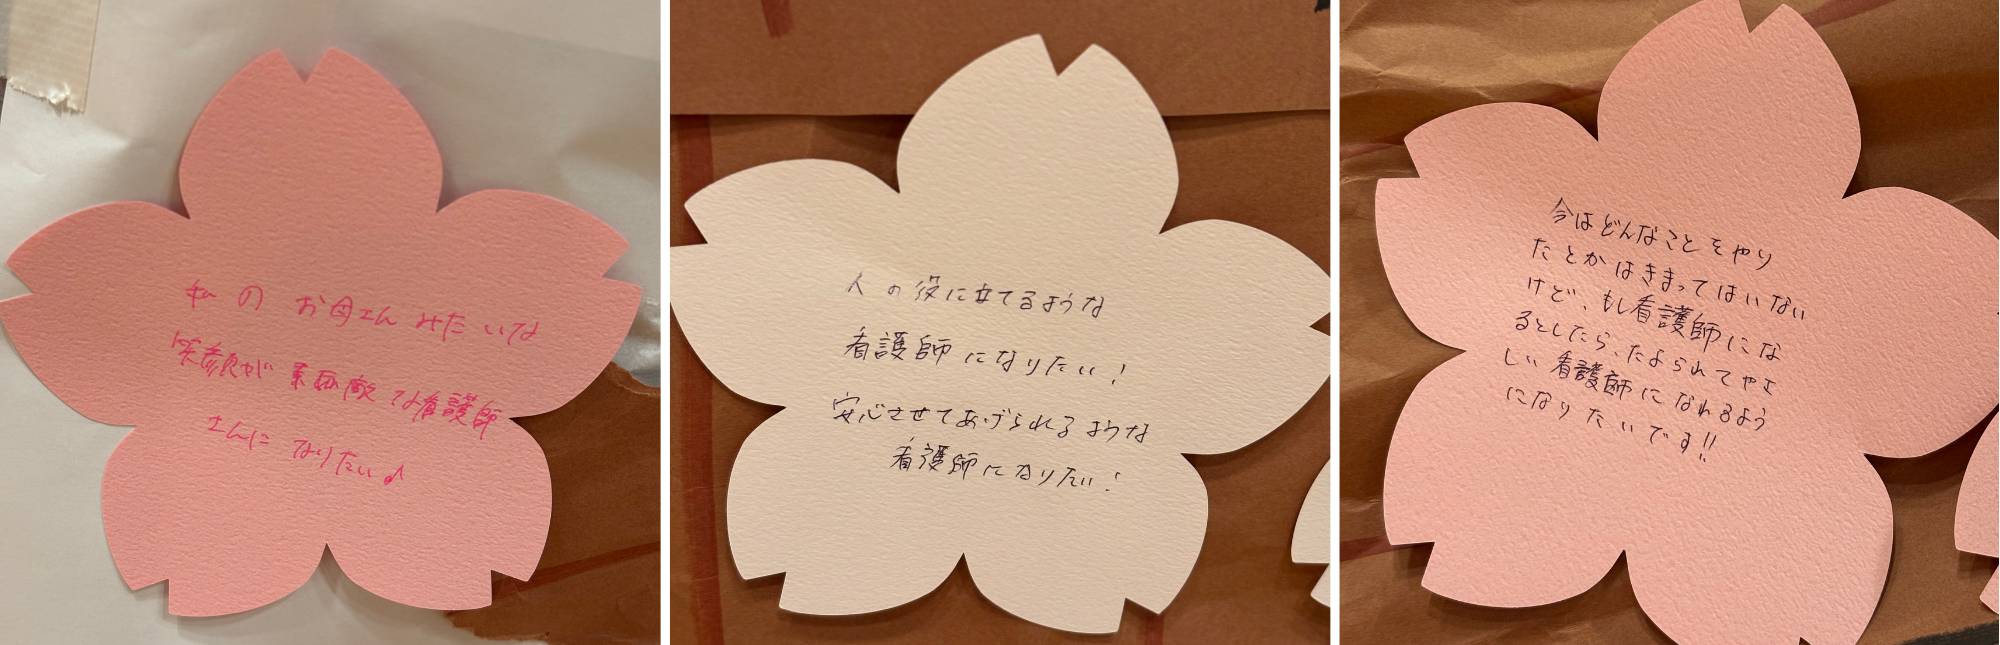 私のお母さんみたいな
笑顔が素敵な看護師
さんになりたい♪
人の役に立てるような
看護師になりたい!
安心させてあげられるような
看護師になりたい!
今はどんなことをやり
たとかはきまってはいない
けど、もし看護師にな
るとしたら、たよられてやさ
しい看護師になれるよう
になりたいです!!